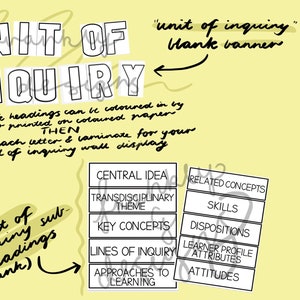 UNIT OF
INQUIRY
"unit of inquiry"
blank banner
headings can be coloured in by
or printed on coloured paper
THEN
each letter & laminate for your
of inquiry wall display
CENTRAL IDEA
TRANSDISCIPLINARY
THEME
KEY CONCEPTS
LINES OF INQUIRY
APPROACHES TO
LEARNING
RELATED CONCEPTS
SKILLS
DISPOSITIONS
LEARNER PROFILE
ATTRIBUTES
ATTITUDES
of
sub-